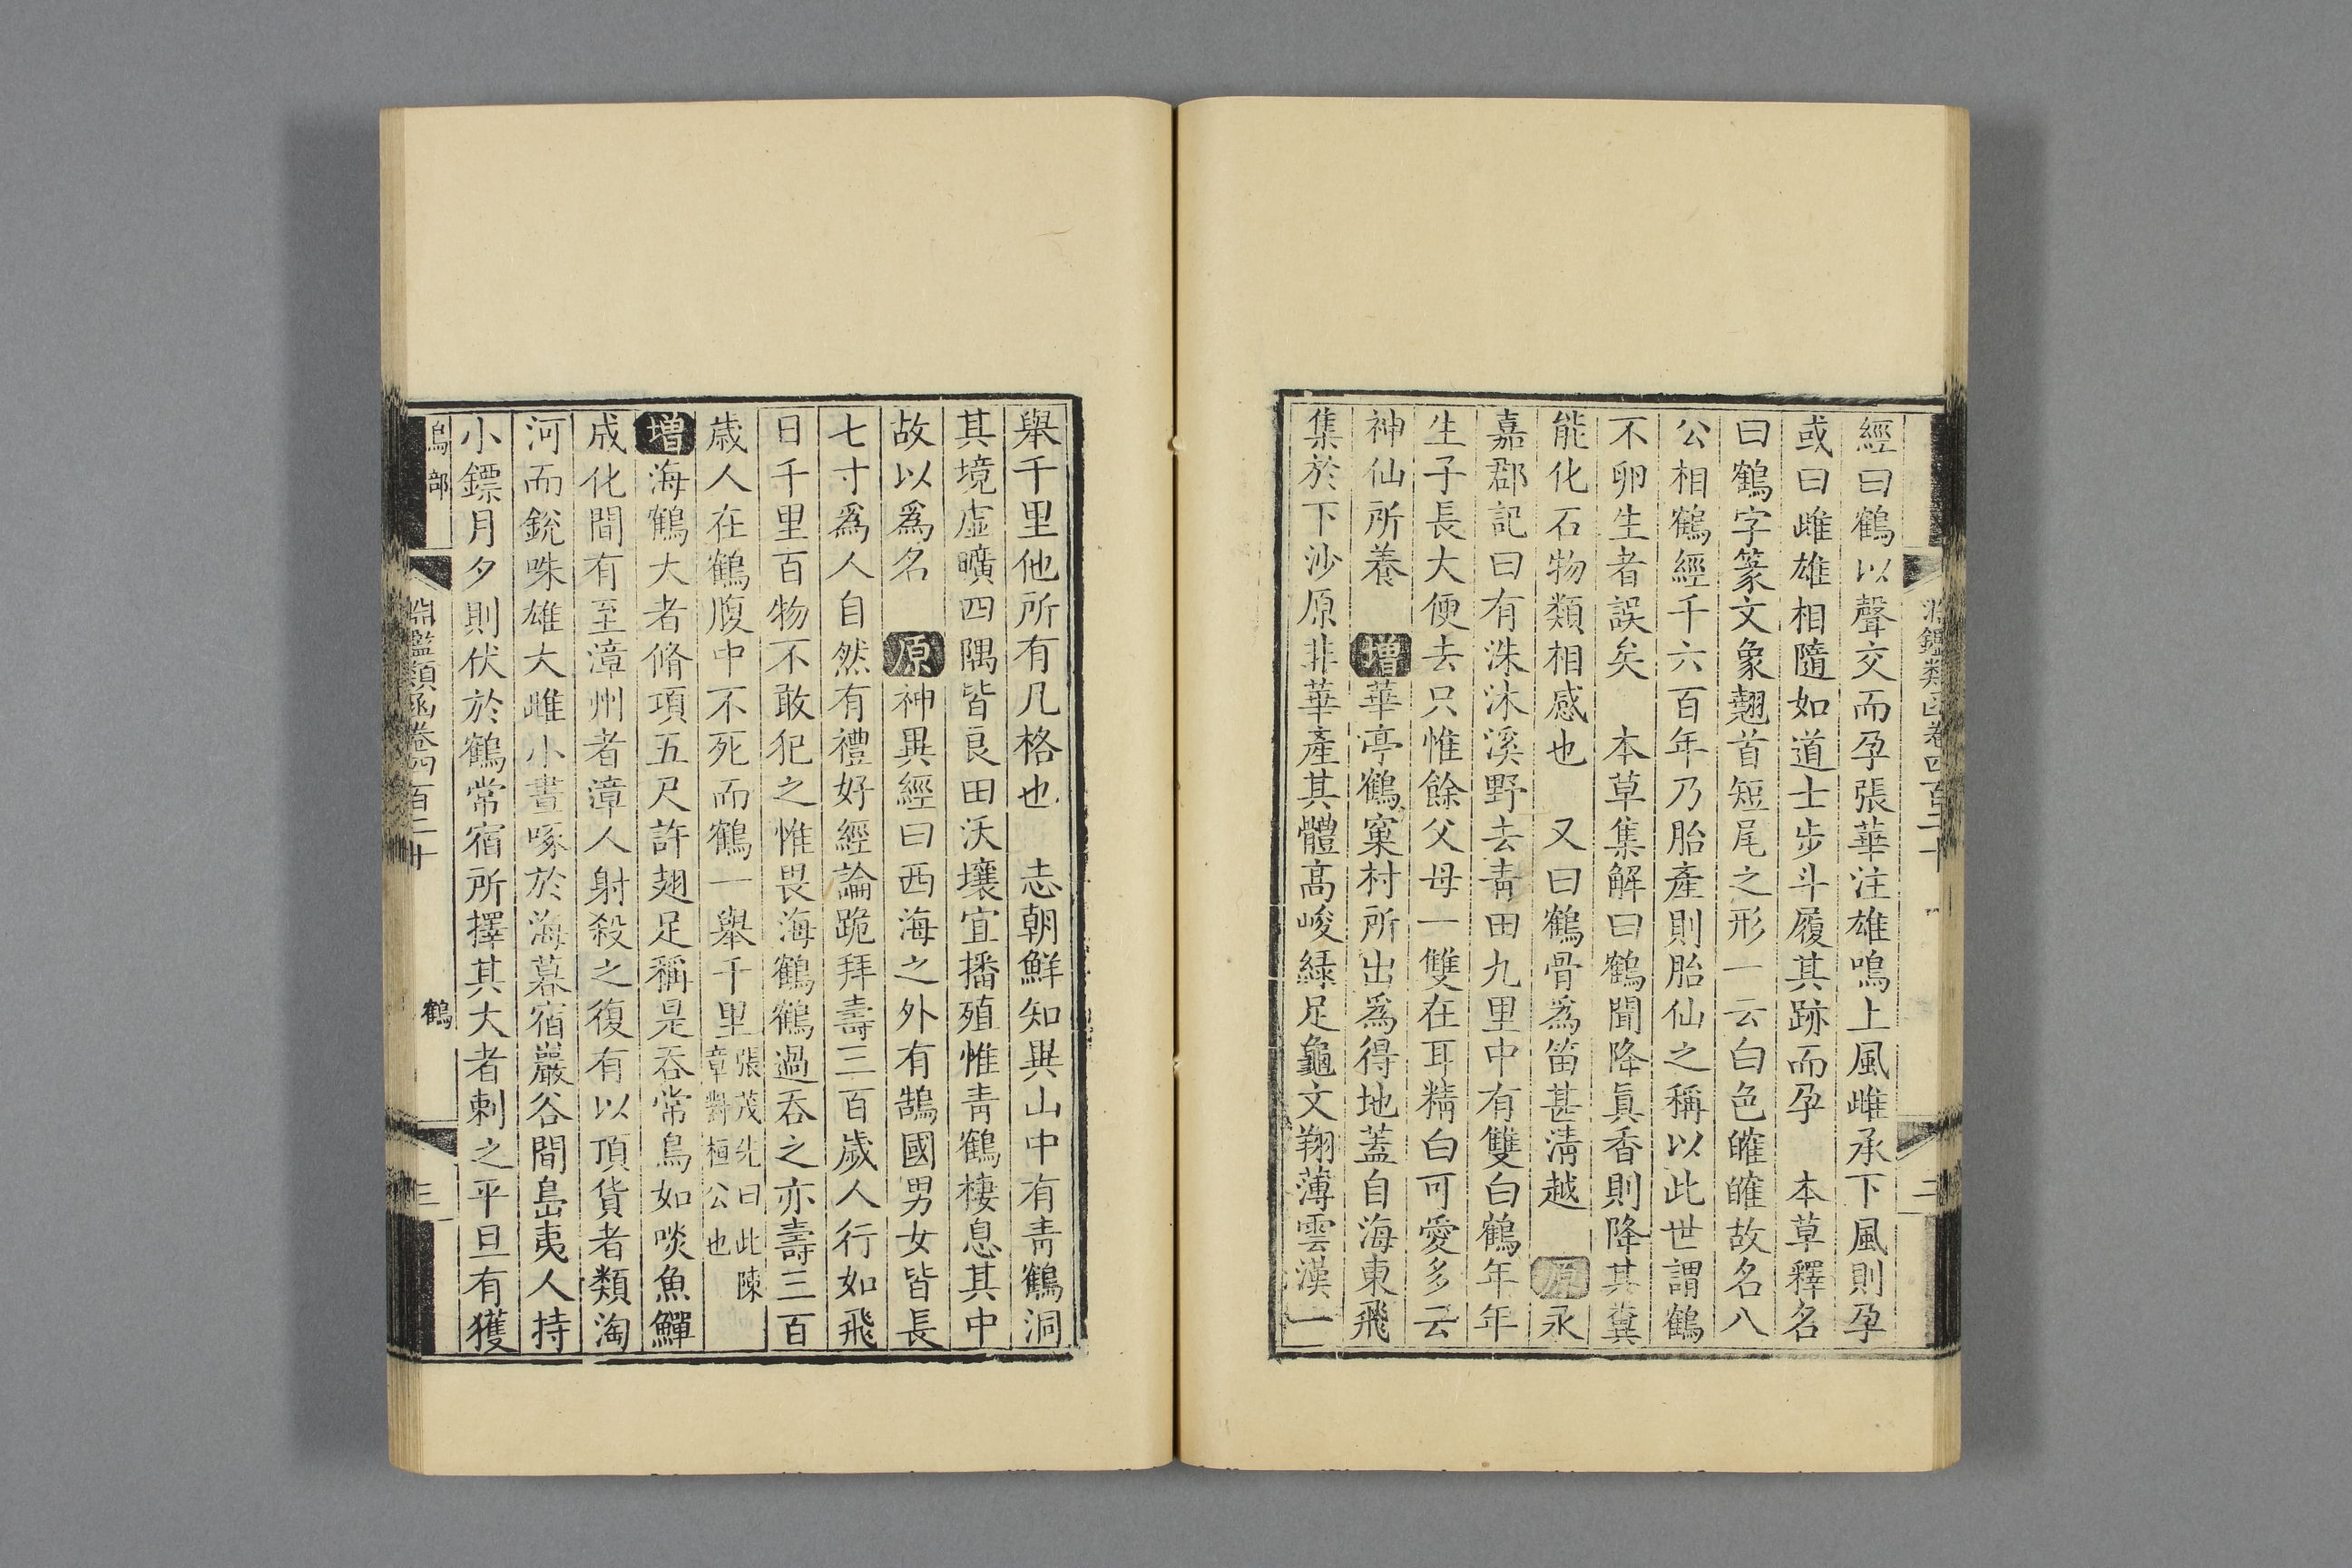 淵鑑類函卷四百二十
二
經曰鶴以聲交而孕張華注雄鳴上風雌承下風則孕
或曰雌雄相隨如道士步斗履其跡而孕　本草釋名
曰鶴字篆文象翹首短尾之形一云白色㿥㿥故名八
公相鶴經千六百年乃胎產則胎仙之稱以此世謂鶴
不卵生者誤矣　本草集解曰鶴聞降眞香則降其糞
能化石物類相感也　又曰鶴骨爲笛甚淸越　原永
嘉郡記曰有洙沐溪野去靑田九里中有雙白鶴年年
生子長大便去只惟餘父母一雙在耳精白可愛多云
神仙所養　增華亭鶴窠村所出爲得地蓋自海東飛
集於下沙原非華產其體高峻綠足龜文翔薄雲漢一
舉千里他所有凡格也　志朝鮮知異山中有靑鶴洞
其境虛曠四隅皆良田沃壤宜播殖惟靑鶴棲息其中
故以爲名　原神異經曰西海之外有鵠國男女皆長
七寸爲人自然有禮好經論跪拜壽三百歲人行如飛
日千里百物不敢犯之惟畏海鶴鶴過吞之亦壽三百
歲人在鶴腹中不死而鶴一舉千里張茂先曰此陳章對桓公也
增海鶴大者脩項五尺許翅足稱是吞常鳥如啖魚鱓
成化間有至漳州者漳人射殺之復有以頂貨者類淘
河而銳咮雄大雌小晝啄於海暮宿巖谷間島夷人持
小鏢月夕則伏於鶴常宿所擇其大者刺之平旦有獲
鳥部
淵鑑類函卷四百二十
鶴
三